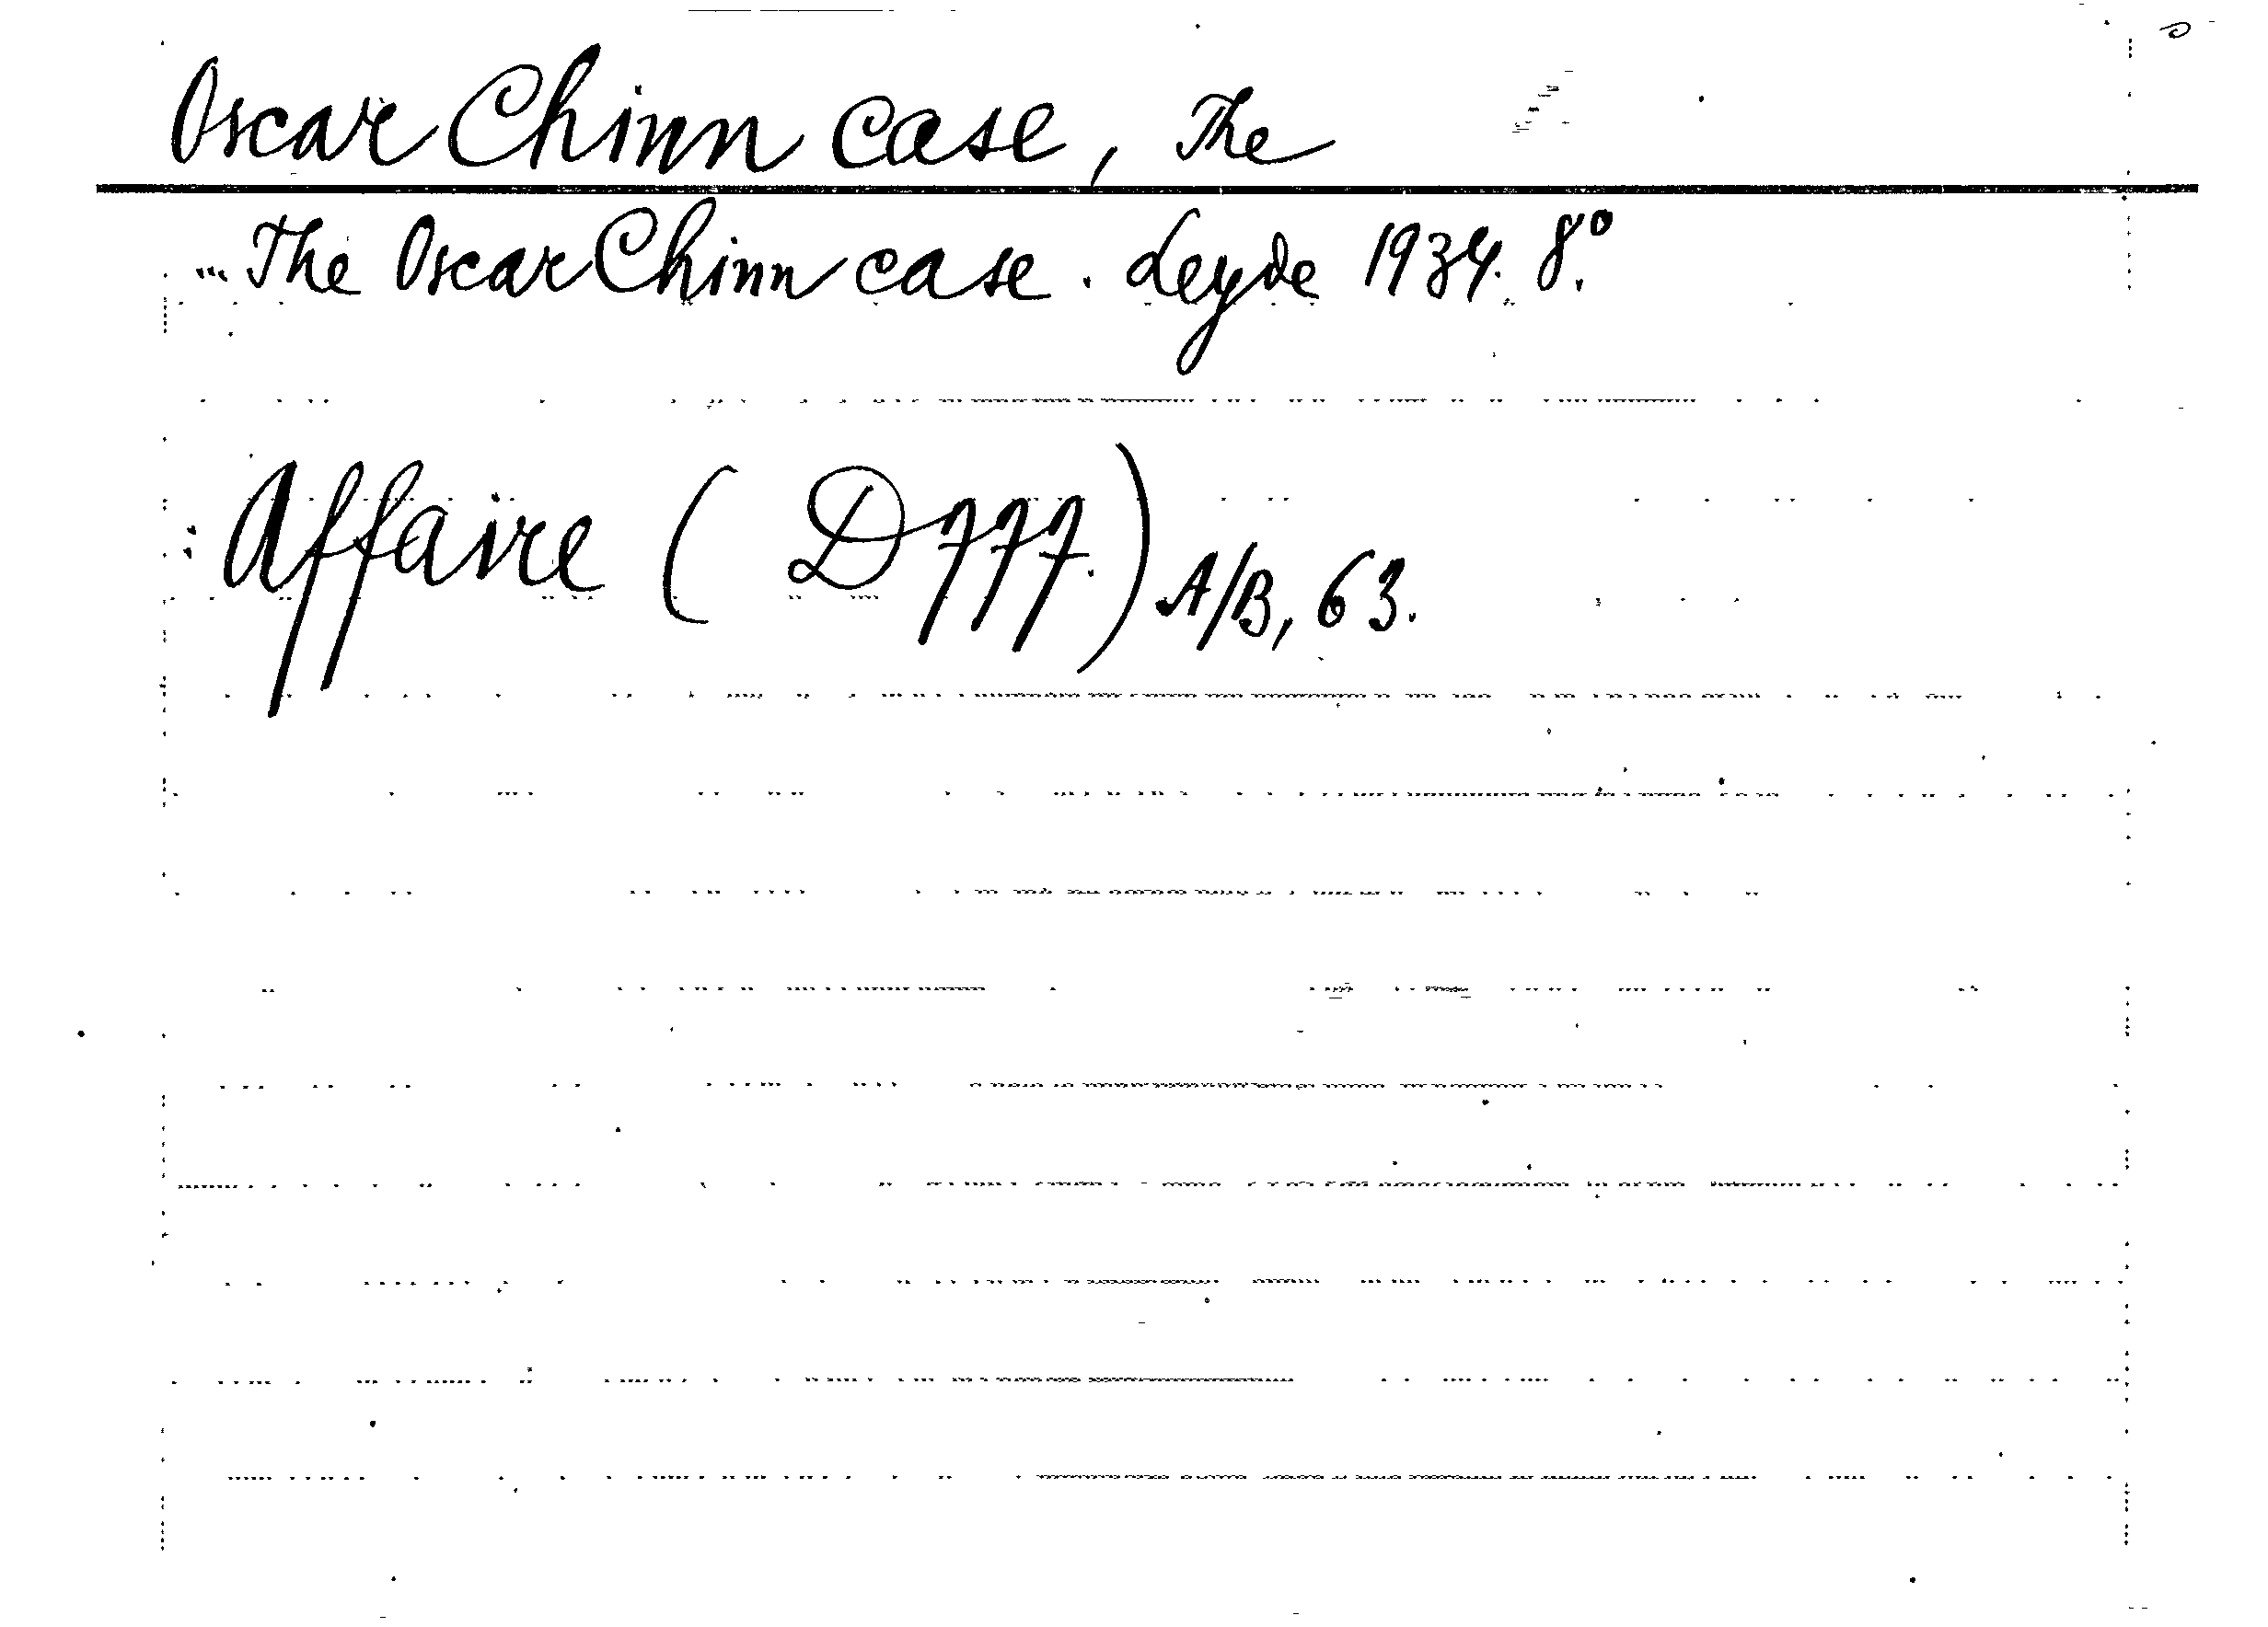 Oscar Chinn case, The
... The Oscar Chinn case. Leyde 1934. 8°.
: Affaire ( D 777.) A/B, 63.